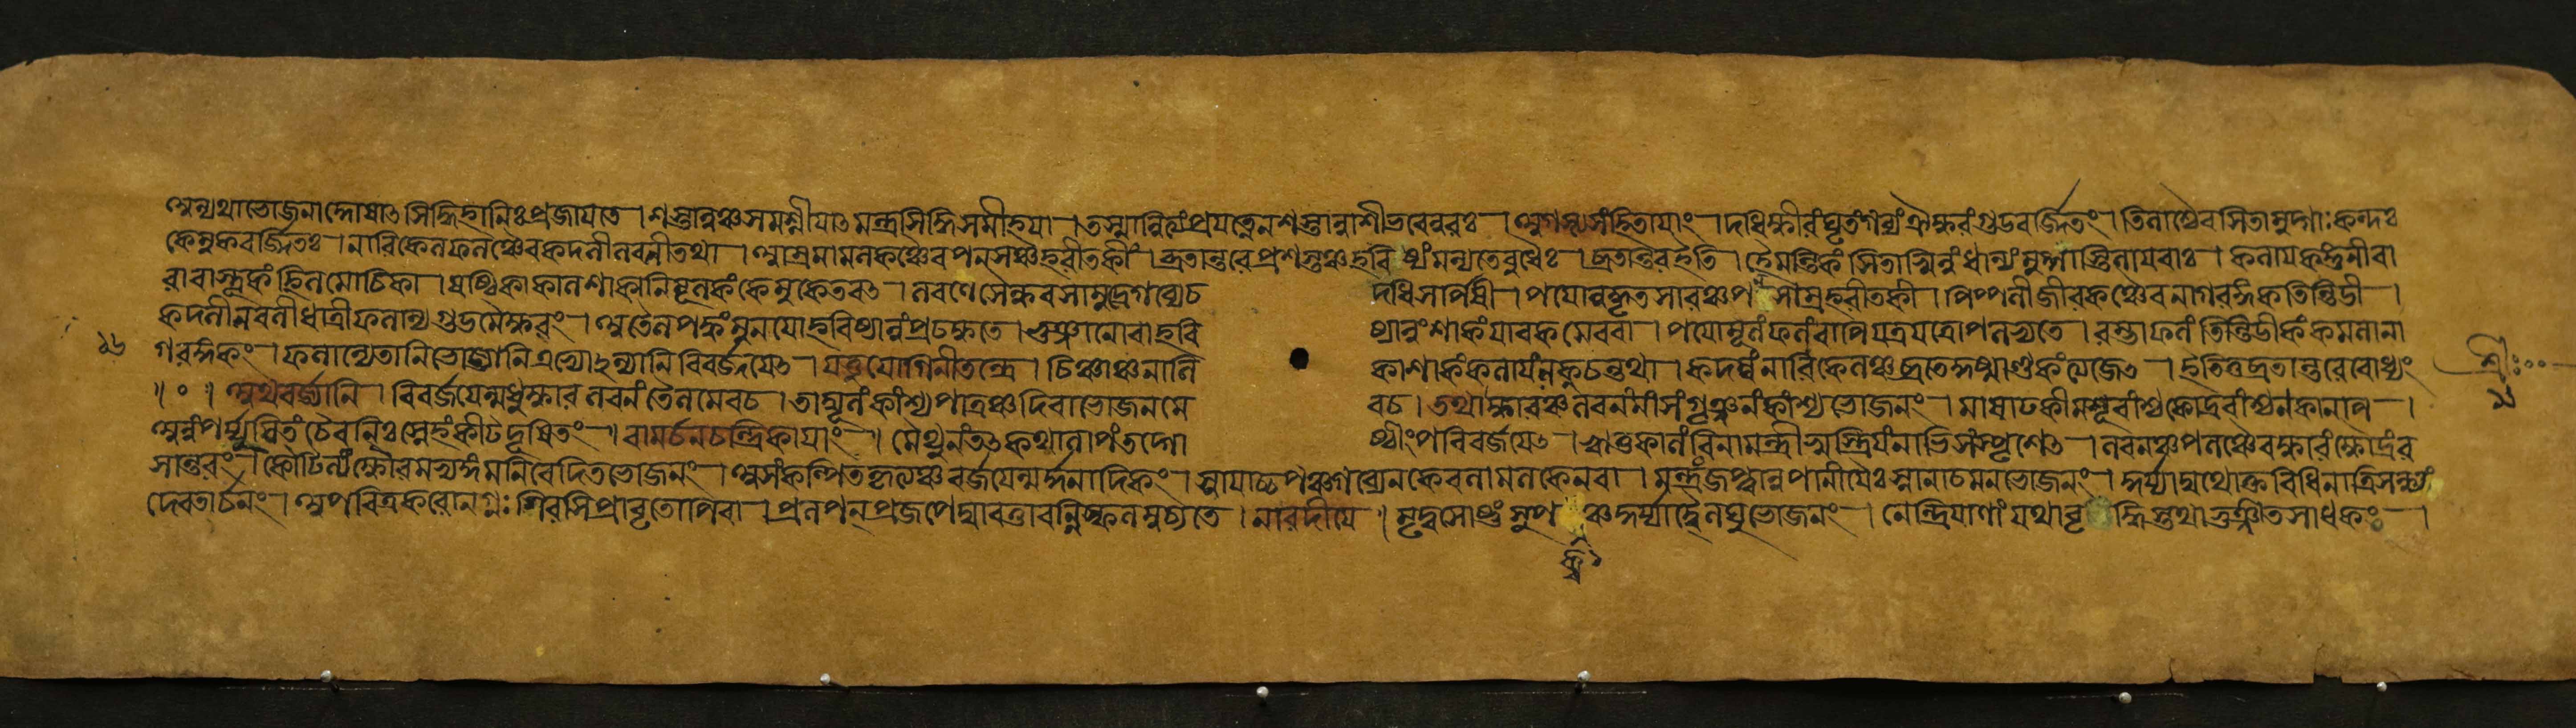 অন্যথাভোজনাদ্দোষাৎ সিদ্ধিহানিঃ প্রজায়তে । শস্তান্নঞ্চ সমশ্নীয়াৎ মন্ত্রসিদ্ধিসমীহয়া । তস্মান্নিত্যং প্রযত্নেন শস্তান্নাশী ভবেন্নরঃ । অগস্ত্যসংহিতায়াং । দধিক্ষীরং ঘৃতং গব্যং ঐক্ষবং গুডবর্জ্জিতং । তিলাশ্চৈব সিতামুদ্গাঃ কন্দঃ
কেমুকবর্জ্জিতঃ । নারিকেলফলঞ্চৈব কদলী লবলী তথা । আম্রমামলকঞ্চৈব পনসঞ্চ হরীতকীং । ব্রতান্তরে প্রশস্তঞ্চ হবিষ্যং মন্যতে বুধৈঃ । ব্রতান্তর ইতি । হৈমন্তিকং সিতাস্বিন্নং ধান্যং মুদ্গাস্তিলাযবাঃ । কলায়কঙ্গুনীবা
রা বাস্তূকং হিলমোচিকা । ষষ্ঠিকা কালশাকানি মূলকং কেমুকেতরৎ । লবণে সৈন্ধবসামুদ্রে গব্যে চ দধিসর্পিষী । পয়োনুদ্ধৃতসারঞ্চ পনসাম্রহরীতকী । পিপ্পলী জীরকঞ্চৈব নাগরঙ্গকতিন্তিডী ।
কদলী লবলী ধাত্রী ফলান্যগুডমৈক্ষবং । অতৈলপক্বং মুনয়ো হবিষ্যান্নং প্রচক্ষতে । ভুঞ্জানো বা হবিষ্যান্নং শাকং যাবকমেব বা । পয়োমূলং ফলং বাপি যত্র যত্রোপলভ্যতে । রম্ভাফলং তিন্তিডীকং কমলানা
১৬ গরঙ্গকং । ফলান্যেতানি ভোজ্যানি এভ্যোঽন্যানি বিবর্জয়েৎ । যত্তু যোগিনীতন্ত্রে । চিঞ্চাঞ্চ নালিকাশাকং কলায়ং লকুচন্তথা । কদম্বং নারিকেলঞ্চ ব্রতে কুষ্মাণ্ডকং ত্যজেত । ইতি তদ্ব্রতান্তরে বোধ্যং শ্রীঃ
॥ ० ॥ অথ বর্জ্যানি । বিবর্জয়েন্মধুক্ষারলবণং তৈলমেব চ । তাম্বূলং কাংশ্যপাত্রঞ্চ দিবাভোজনমেব চ । তথা ক্ষারঞ্চ লবণং মাংসং গৃঞ্জনং কাংশ্যভোজনং । মাষাঢকীমসূরাংশ্চ কোদ্রবাংশ্চনকানপি ।
অন্নং পর্য্যুষিতং চৈব নিঃস্নেহং কীটদূষিতং । রামার্চনচন্দ্রিকায়াং । মৈথুনং তৎকথালাপং তদ্গোষ্ঠীং পরিবর্জয়েৎ । ঋতুকালং বিনা মন্ত্রী স্বস্ত্রিয়ং নাভিসংস্পৃশেৎ । লবণঞ্চ পলঞ্চৈব ক্ষারং ক্ষৌদ্রং র
সান্তরং । কৌটিল্যং ক্ষৌরমভ্যঙ্গমনিবেদিতভোজনং । অসংকল্পিতকৃত্যঞ্চ বর্জয়েন্মর্দনাদিকং । স্নায়াচ্চ পঞ্চগব্যেন কেবলামলকেন বা । মন্ত্রং জপ্ত্বান্নপানীয়ৈঃ স্নানাচমনভোজনং । কুর্য্যাদ্যথোক্তবিধিনা ত্রিসন্ধ্যং
দেবতার্চনং । অপবিত্রকরো নগ্নঃ শিরসি প্রাবৃতোপি বা । প্রলপন্ প্রজপেদ্যাবত্তাবন্নিষ্ফলমুচ্যতে । নারদীয়ে । মৃদু সোষ্ণং সুপঞ্চ কুর্য্যাদ্বৈ লঘুভোজনং । নেন্দ্রিয়াণাং যথা বৃদ্ধিস্তথা ভুঞ্জীত সাধকঃ ।
ক্ব